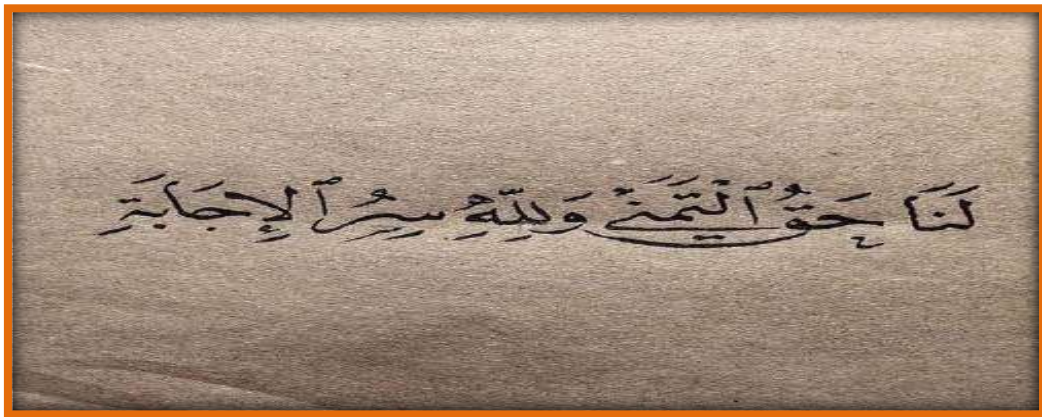 لَنَا حَقُّ ٱلْتَّمَنِّي وَلِلّٰهِ سِرُّ ٱلْإِجَابَةِ